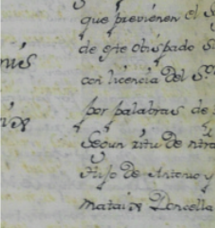 que previenen el
de este obispado
con licencia del S.
por palabras de
Segun ritu de ntra
Hijo de Antonio y
Donzella